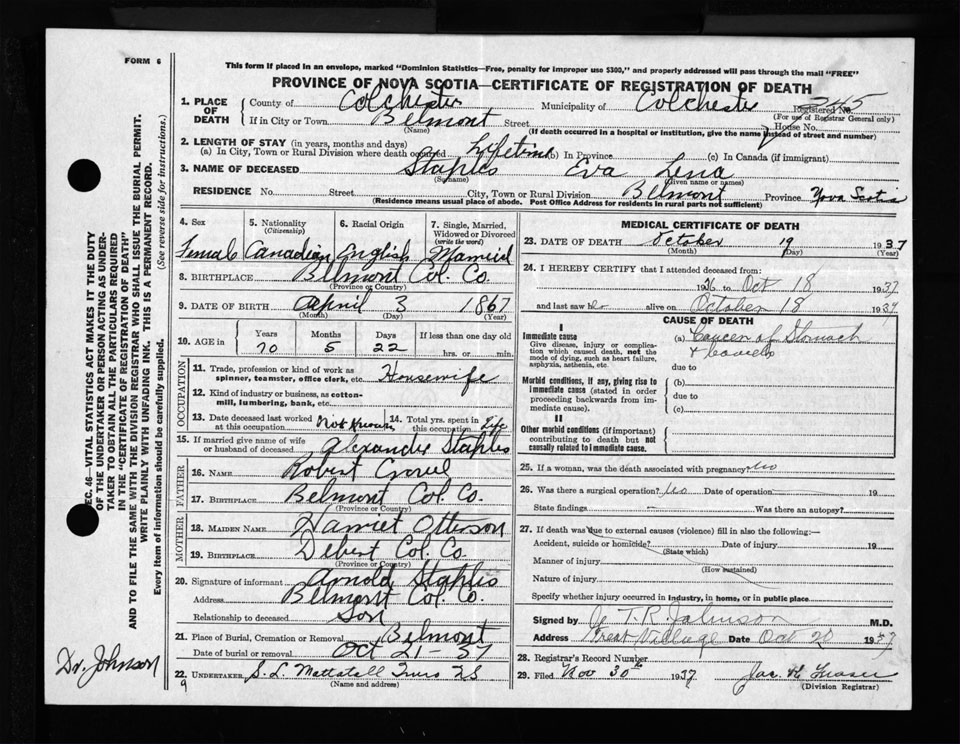 FORM 6
This form if placed in an envelope, marked "Dominion Statistics—Free, penalty for improper use $300," and properly addressed will pass through the mail "FREE"
PROVINCE OF NOVA SCOTIA—CERTIFICATE OF REGISTRATION OF DEATH
1. PLACE OF DEATH County of Colchester Municipality of Colchester Registered No. 245
(For use of Registrar General only)
If in City or Town Belmont Street House No.
(Name) (If death occurred in a hospital or institution, give the name instead of street and number)
2. LENGTH OF STAY (in years, months and days)
(a) In City, Town or Rural Division where death occurred Lifetime (b) In Province (c) In Canada (if immigrant)
3. NAME OF DECEASED Staples Eva Lena
(Surname) (Given name or names)
RESIDENCE No. Street City, Town or Rural Division Belmont Province Nova Scotia
(Residence means usual place of abode. Post Office Address for residents in rural parts not sufficient)
4. Sex 5. Nationality (Citizenship) 6. Racial Origin 7. Single, Married, Widowed or Divorced (write the word)
Female Canadian English Married
8. BIRTHPLACE Belmont Col. Co.
(Province or Country)
9. DATE OF BIRTH April 3 1867
(Month) (Day) (Year)
10. AGE in Years Months Days If less than one day old
70 5 22 hrs. or min.
OCCUPATION
11. Trade, profession or kind of work as spinner, teamster, office clerk, etc. Housewife
12. Kind of industry or business, as cotton-mill, lumbering, bank, etc.
13. Date deceased last worked at this occupation Not Known 14. Total yrs. spent in this occupation Life
15. If married give name of wife or husband of deceased Alexander Staples
FATHER
16. NAME Robert
17. BIRTHPLACE Belmont Col. Co.
(Province or Country)
MOTHER
18. MAIDEN NAME Harriet Otterson
19. BIRTHPLACE Debert Col. Co.
(Province or Country)
20. Signature of informant Arnold Staples
Address Belmont Col. Co.
Relationship to deceased Son
21. Place of Burial, Cremation or Removal Belmont
Date of burial or removal Oct 21-37
22. UNDERTAKER S. L. Mattatall Truro NS
(Name and address)
9
MEDICAL CERTIFICATE OF DEATH
23. DATE OF DEATH October 19 1937
(Month) (Day) (Year)
24. I HEREBY CERTIFY that I attended deceased from:
1936 to Oct 18 1937
and last saw her alive on October 18 1937
CAUSE OF DEATH
I
Immediate cause
Give disease, injury or complication which caused death, not the mode of dying, such as heart failure, asphyxia, asthenia, etc.
(a) Cancer of Stomach
& bowels
due to
Morbid conditions, if any, giving rise to immediate cause (stated in order proceeding backwards from immediate cause).
(b)
due to
(c)
II
Other morbid conditions (if important) contributing to death but not causally related to immediate cause.
25. If a woman, was the death associated with pregnancy? No
26. Was there a surgical operation? No Date of operation 19
State findings Was there an autopsy?
27. If death was due to external causes (violence) fill in also the following:
Accident, suicide or homicide? Date of injury 19
(State which)
Manner of injury
(How sustained)
Nature of injury
Specify whether injury occurred in industry, in home, or in public place
Signed by T. R. Johnson M.D.
Address Great Village Date Oct 20 1937
28. Registrar's Record Number
29. Filed Nov 30th 1937 Jas. Fraser
(Division Registrar)
SEC. 46—VITAL STATISTICS ACT MAKES IT THE DUTY
OF THE UNDERTAKER OR PERSON ACTING AS UNDER-
TAKER TO OBTAIN ALL THE PARTICULARS REQUIRED
IN THE "CERTIFICATE OF REGISTRATION OF DEATH"
AND TO FILE THE SAME WITH THE DIVISION REGISTRAR WHO SHALL ISSUE THE BURIAL PERMIT.
WRITE PLAINLY WITH UNFADING INK. THIS IS A PERMANENT RECORD.
Every item of information should be carefully supplied. (See reverse side for instructions.)
Dr. Johnson